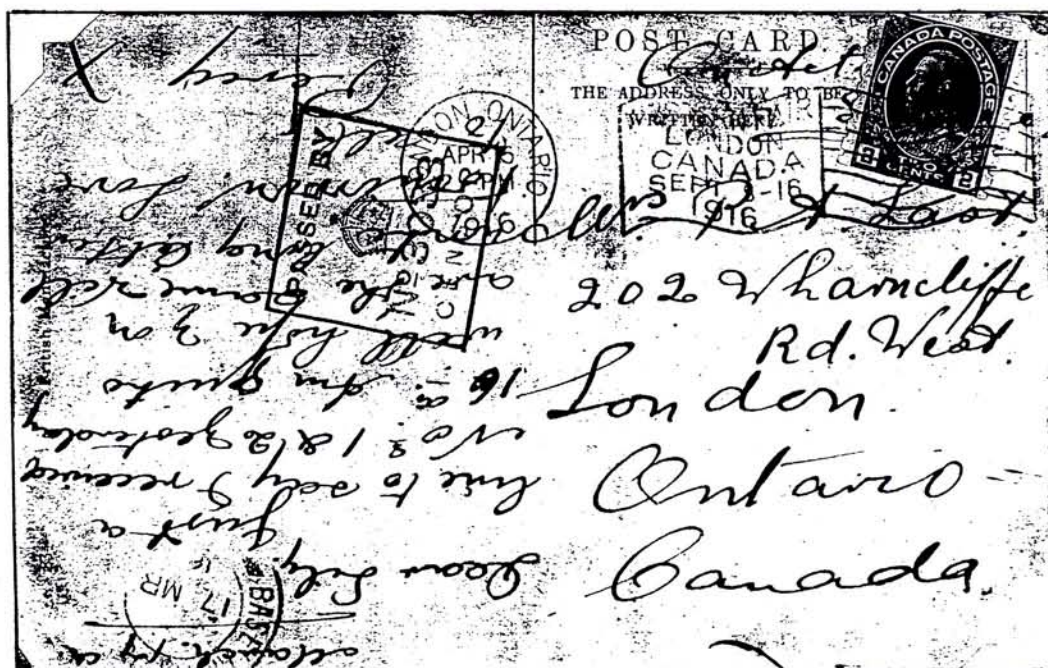 POST CARD
THE ADDRESS ONLY TO BE
WRITTEN HERE.
CANADA POSTAGE
TWO CENTS
2 2
LONDON
CANADA
SEPT
-16
1916
LONDON, ONTARIO
APR 5
PM
1916
PASSED BY
CENSOR
British
Last
202 Wharncliffe
Rd. West.
London.
Ontario -
Canada
BASE
17 MR
March
Dear Lily,
Just a
line to say I received
Nos 1 & 2 yesterday
Am quite
well hope you
are the same will
long letter
Love
Percy
X